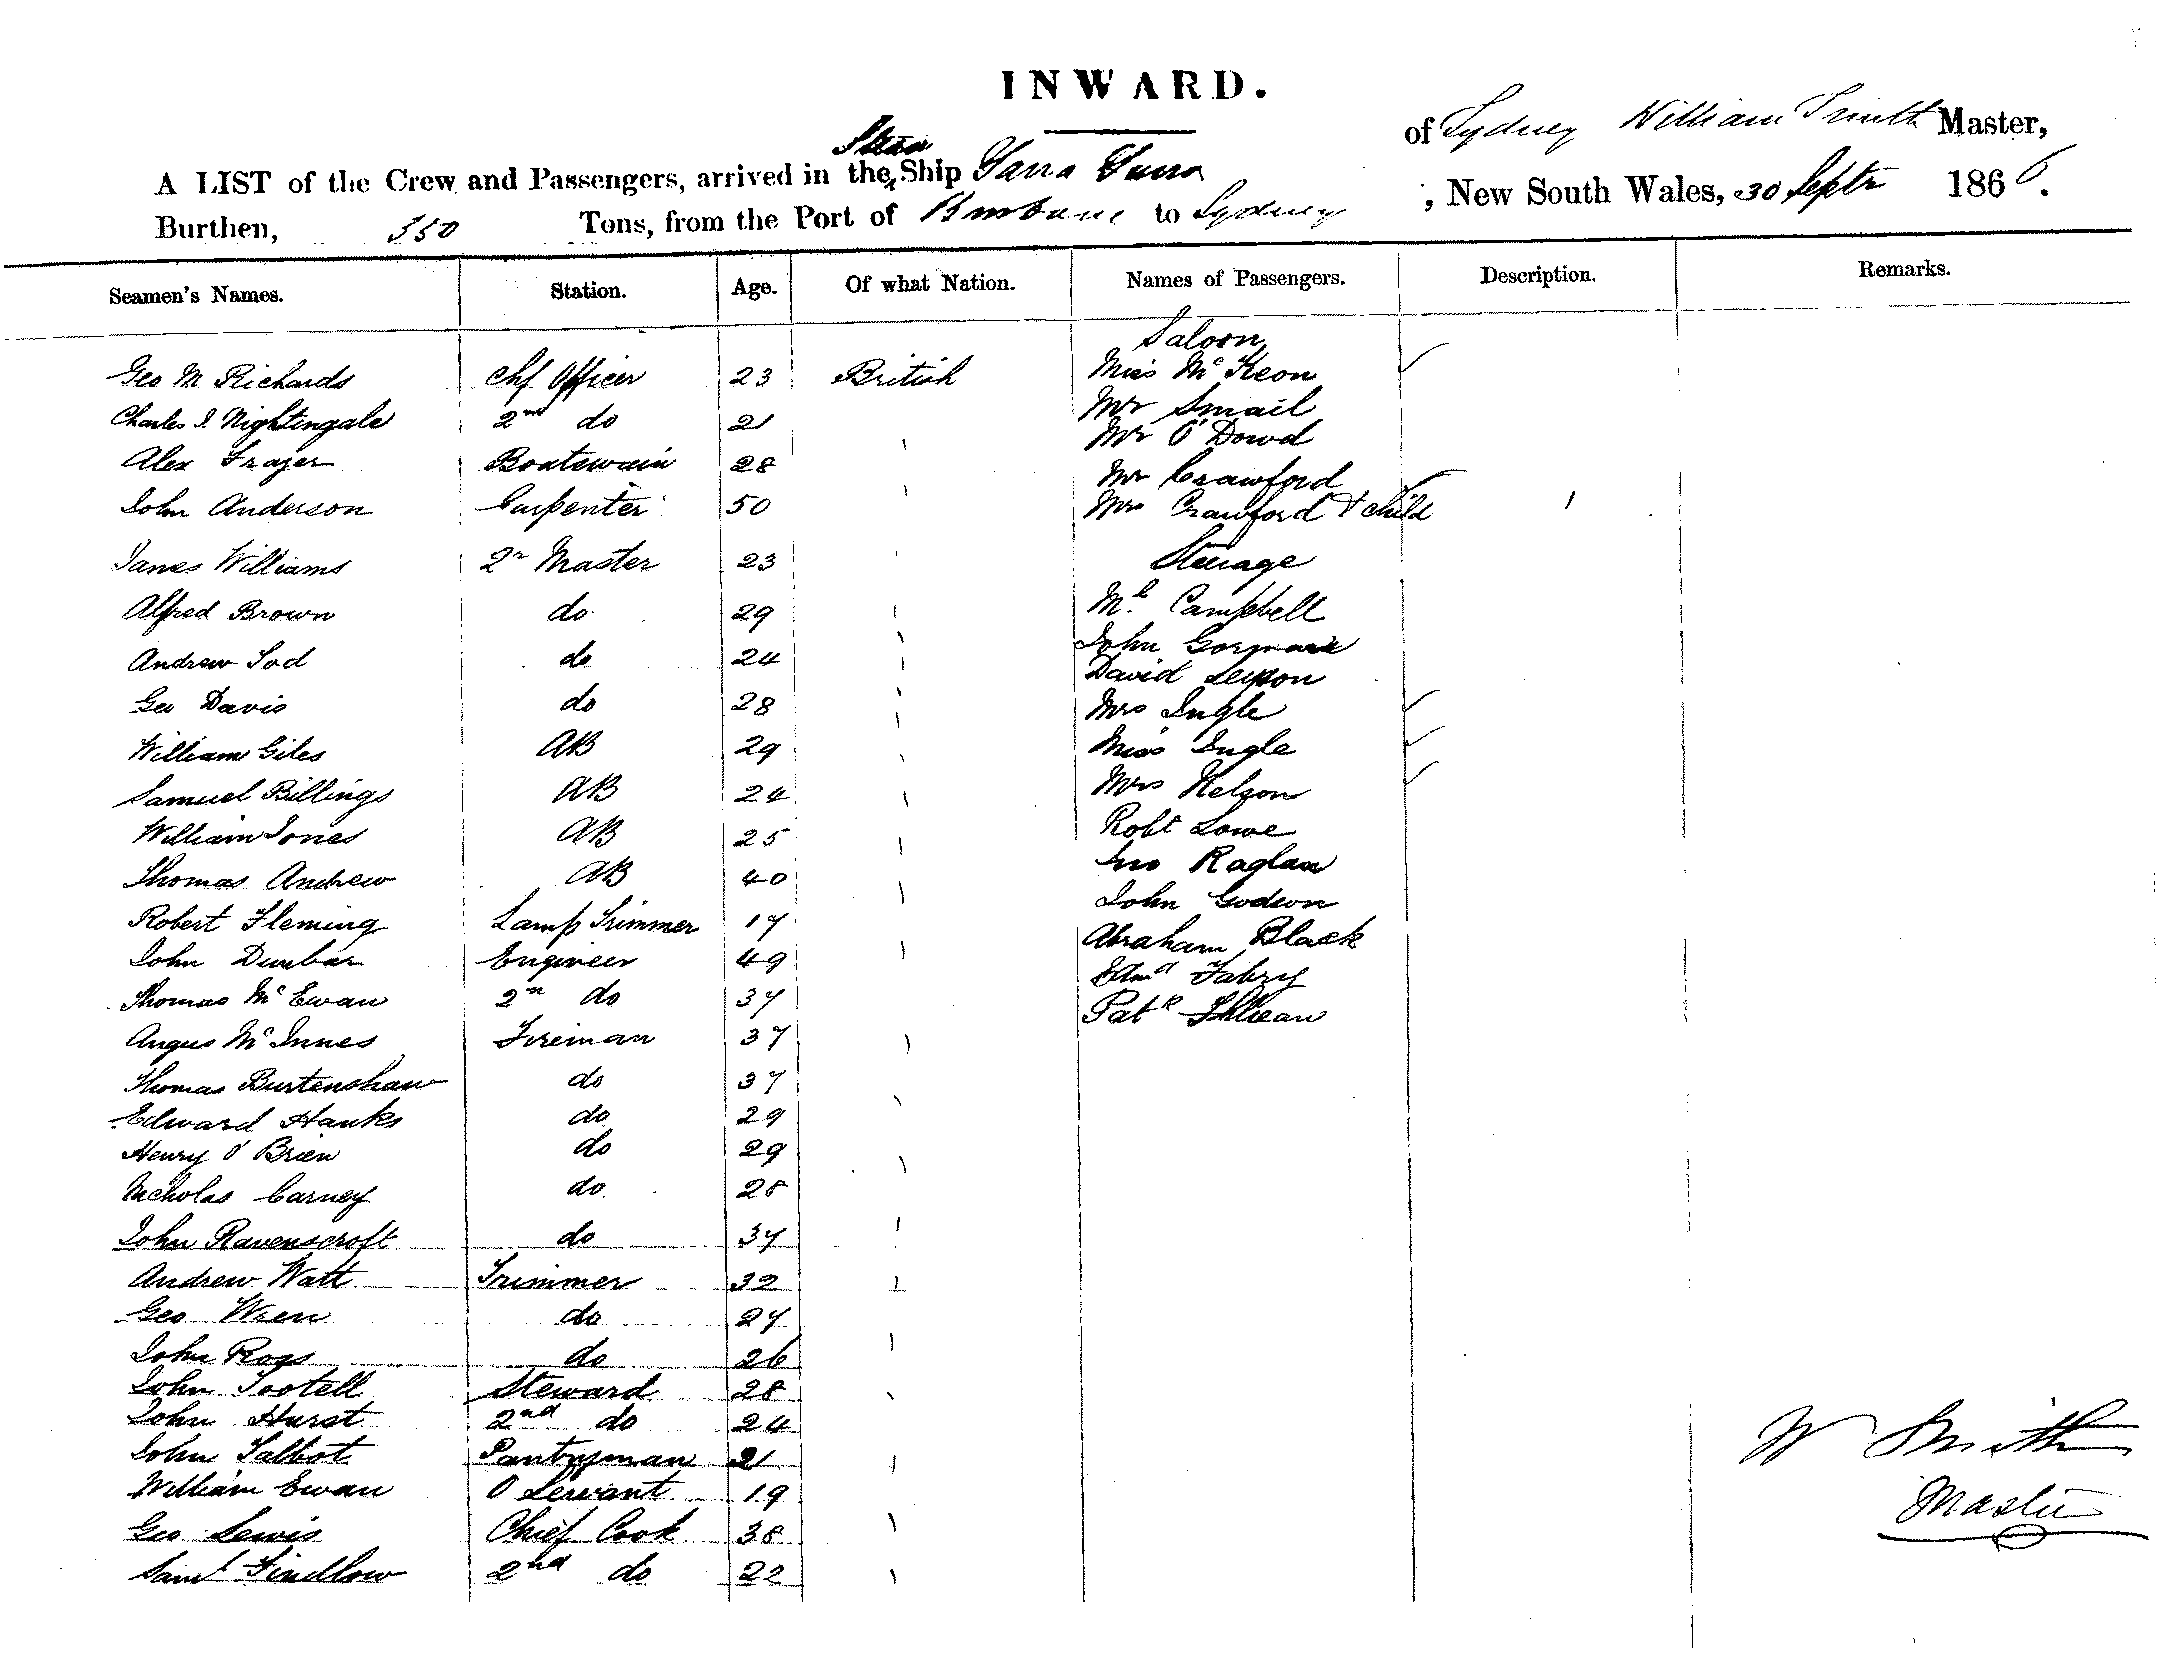 INWARD.
A LIST of the Crew and Passengers, arrived in the Steam Ship Yarra Yarra of Sydney William Smith Master,
Burthen, 350 Tons, from the Port of Brisbane to Sydney , New South Wales, 30 Septr 1866.
Seamen's Names. Station. Age. Of what Nation. Names of Passengers. Description. Remarks.
Saloon
Geo M Richards Chf Officer 23 British Miss McKeon
Charles I. Nightingale 2nd do 21 Mr Smail
Mr O'Dowd
Alex Frazer Boatswain 28 Mr Crawford
John Anderson Carpenter 50 Mrs Crawford & child
James Williams 2r Master 23 Steerage
Alfred Brown do 29 Mc Campbell
Andrew Tod do 24 John Gorman
David
Geo Davis do 28 Mrs Ingle
William Giles AB 29 Miss Ingle
Samuel Billings AB 24 Mrs Nelson
William Jones AB 25 Robt Lowe
Thomas Andrew AB 40 Geo Raglan
Robert Fleming Lamp Trimmer 17 John
John Dunbar Engineer 49 Abraham Black
Thomas McEwan 2n do 37 Edmd Fabry
Angus McInnes Fireman 37 Patk
Thomas Burtenshaw do 37
Edward Hanks do 29
Henry O'Brien do 29
Nicholas Carney do 28
John Ravenscroft do 37
Andrew Watt Trimmer 32
Geo Wren do 27
John Ross do 26
John Tootell Steward 28
John Hurst 2nd do 24
John Talbot Pantryman 21
William Ewan O Servant 19
Geo Lewis Chief Cook 38
Saml Findlow 2nd do 22
W Smith
Master